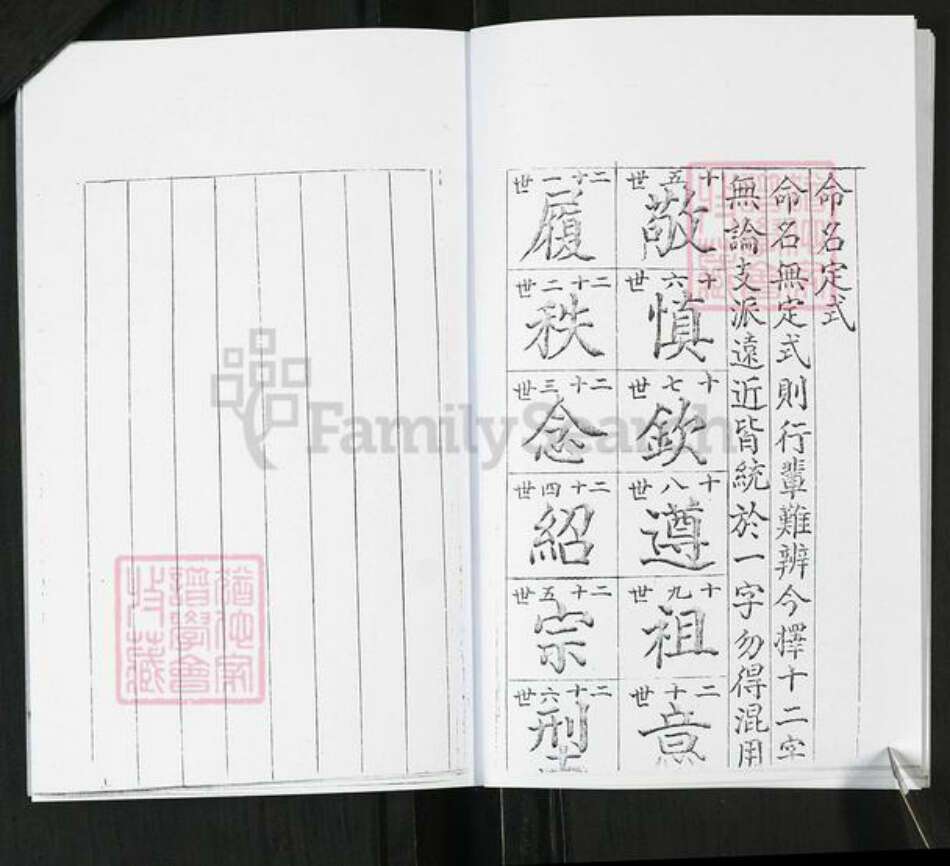 命名定式
命名無定式則行輩難辨今擇十二字
無論支派遠近皆統於一字勿得混用
十五世
敬
十六世
慎
十七世
欽
十八世
遵
十九世
祖
二十世
意
二十一世
履
二十二世
秩
二十三世
念
二十四世
紹
二十五世
宗
二十六世
型
猶他家
譜學會
收藏
FamilySearch